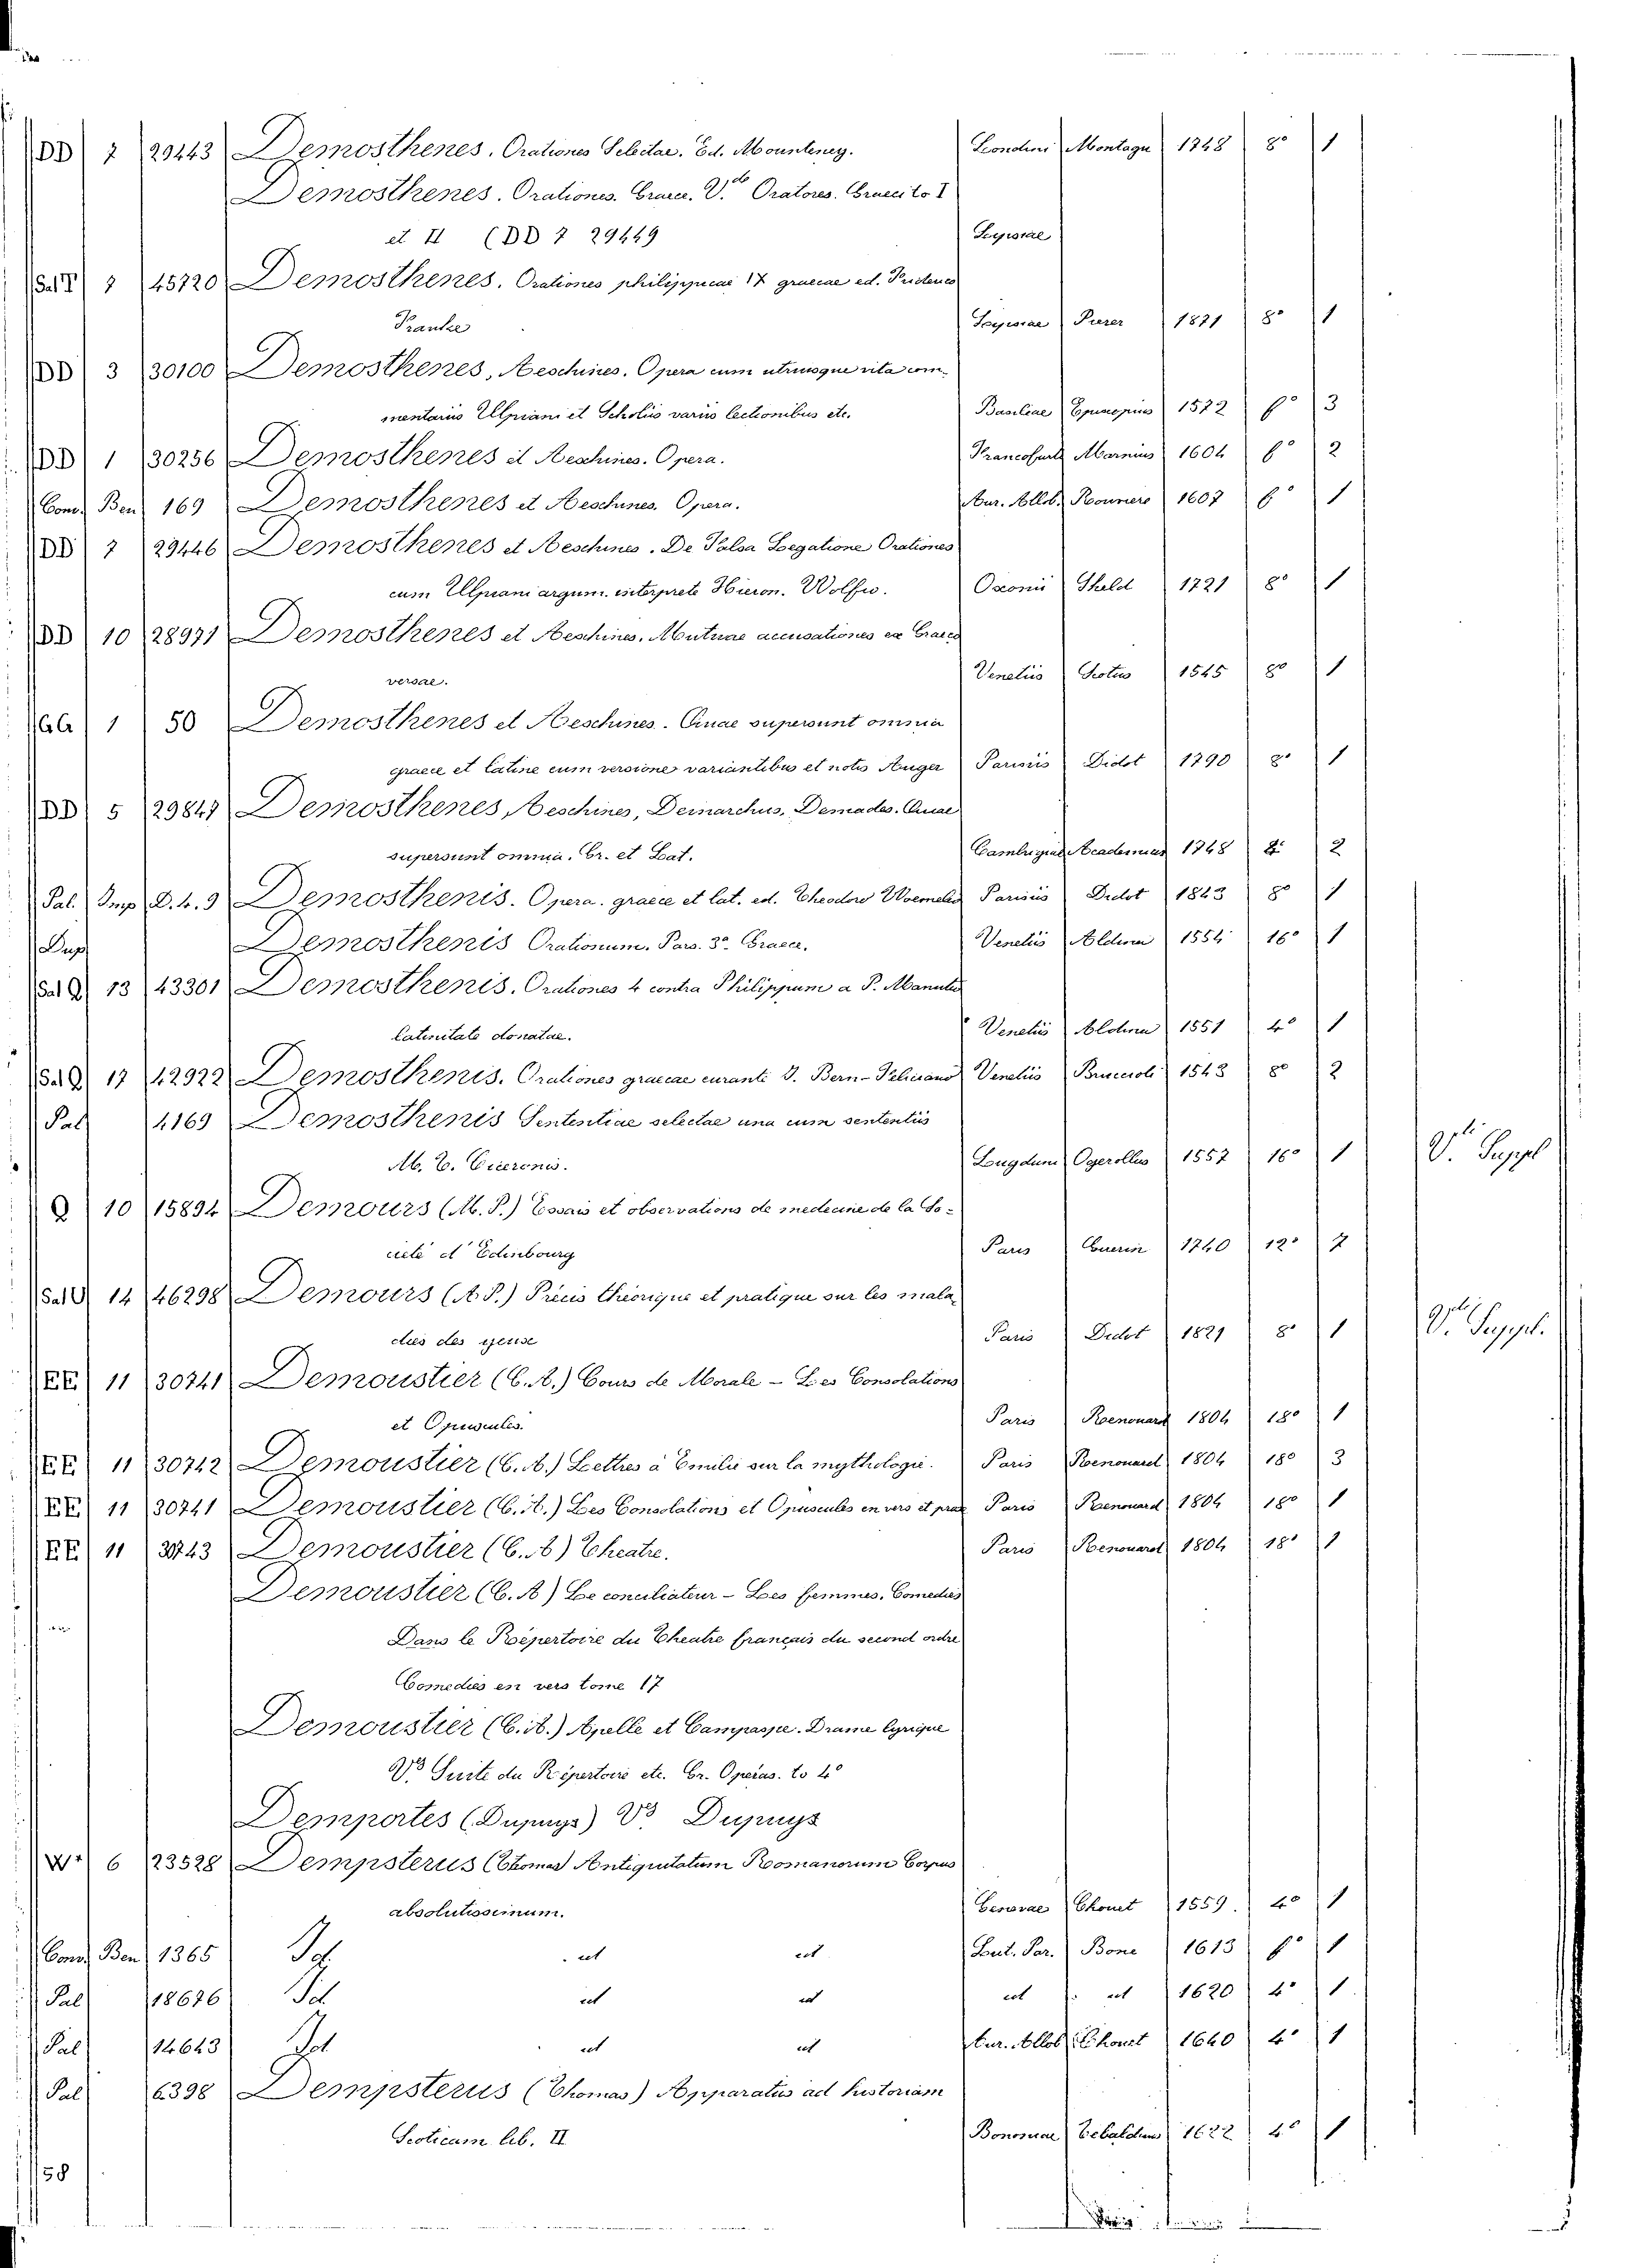 DD 7 29443 Demosthenes. Orationes Selectae. Ed. Mounteney. Londini Montagu 1748 8° 1
Demosthenes. Orationes. Graece. V.do Oratores. Graeci to I
et II (DD 7 29449 Lipsiae
Sal T 7 45720 Demosthenes. Orationes philippicae IX graecae ed. Fridericus
Franke Lipsiae 1871 8° 1
DD 3 30100 Demosthenes, Aeschines. Opera cum utriusque vita com-
mentariis Ulpiani et Scholiis variis lectionibus etc. Basiliae Episcopius 1572 f° 3
DD 1 30256 Demosthenes et Aeschines. Opera. Francofurti Marnius 1604 f° 2
Conv. Ben 169 Demosthenes et Aeschines. Opera. Aur. Allob. Roviere 1607 f° 1
DD 7 29446 Demosthenes et Aeschines. De Falsa Legatione Orationes
cum Ulpiani argum. interprete Hieron. Wolfio. Oxonii Theld 1721 8° 1
DD 10 28971 Demosthenes et Aeschines. Mutuae accusationes ex Graeco
versae. Venetiis Scotus 1545 8° 1
GG 1 50 Demosthenes et Aeschines. Quae supersunt omnia
graece et latine cum versione variantibus et notis Auger Parisiis Didot 1790 8° 1
DD 5 29847 Demosthenes, Aeschines, Deinarchus, Demades. Quae
supersunt omnia. Gr. et Lat. Cambrigiae Academiae 1748 8° 2
Pal. Imp D. 4. 9 Demosthenis. Opera. graece et lat. ed. Theodor Woemelius Parisiis Didot 1843 8° 1
Dup Demosthenis Orationum. Pars. 3a. Graece. Venetiis Aldum 1554 16° 1
Sal Q 13 43301 Demosthenis. Orationes 4 contra Philippum a P. Manutio
latinitate donatae. Venetiis Aldum 1551 4° 1
Sal Q 17 42922 Demosthenis. Orationes graecae curante J. Bern-Feliciano Venetiis Bruccioli 1543 8° 2
Pal 4169 Demosthenis Sententiae selectae una cum sententiis
M. T. Ciceronis. Lugduni Ogerollus 1557 16° 1 V. Suppl
Q 10 15894 Demours (M. P.) Essais et observations de medecine de la So-
cieté d'Edinbourg Paris Guerin 1740 12° 7
Sal U 14 46298 Demours (A. P.) Précis théorique et pratique sur les mala-
dies des yeuse Paris Didot 1821 8° 1 V. Suppl.
EE 11 30741 Demoustier (C. A.) Cours de Morale - Les Consolations
et Opuscules. Paris Renouard 1804 18° 1
EE 11 30742 Demoustier (C. A.) Lettres à Emilie sur la mythologie. Paris Renouard 1804 18° 3
EE 11 30741 Demoustier (C. A.) Les Consolations et Opuscules en vers et prose Paris Renouard 1804 18° 1
EE 11 30743 Demoustier (C. A) Theatre. Paris Renouard 1804 18° 1
Demoustier (C. A) Le conciliateur - Les femmes. Comedies
Dans le Répertoire du Theatre français du second ordre
Comedies en vers tome 17
Demoustier (C. A.) Apelle et Campaspe. Drame lyrique
V.° Suite du Répertoire etc. Gr. Operas. to 4°
Demportes (Dupuys) V.° Dupuys
W* 6 23528 Dempsterus (Thomas) Antiquitatum Romanorum Corpus
absolutissimum. Genevae Chouet 1559. 4° 1
Conv. Ben 1365 Id. id id Lut. Par. Bone 1613 f° 1
Pal 18676 Id id id id id 1620 4° 1
Pal 14643 Id id id Aur. Allob Chouet 1640 4° 1
Pal 6398 Dempsterus (Thomas) Apparatus ad historiam
Scoticam lib. II Bononiae Tebaldus 1622 4° 1
58